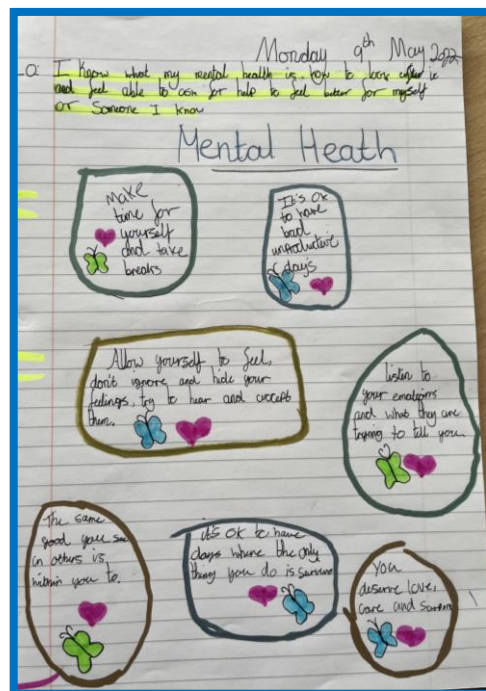 Monday 9th May 2022
LO: I know what my mental health is, how to look after it
and feel able to ask for help to feel better for myself
or someone I know
Mental Heath
Make
time for
yourself
and take
breaks
It's ok
to have
bad
unproductive
days
Allow yourself to feel,
don't ignore and hide your
feelings, try to hear and accept
them.
listen to
your emotions
and what they are
trying to tell you.
The same
good you see
in others is
within you to.
it's ok to have
days where the only
thing you do is survive
You
deserve love,
care and